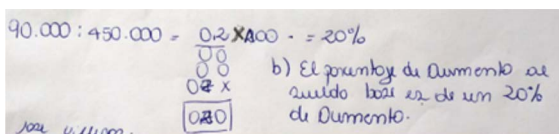 90.000 : 450.000 = 0.2 x 100 . = 20%
00
00
b) El porcentaje de Aumento al
sueldo base es de un 20%
de Aumento.